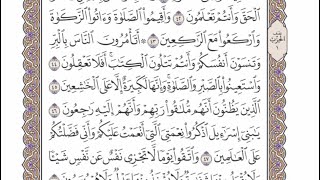 الْحَقَّ وَأَنتُمْ تَعْلَمُونَ ٤٢ وَأَقِيمُوا الصَّلَوٰةَ وَءَاتُوا الزَّكَوٰةَ
وَارْكَعُوا مَعَ الرَّٰكِعِينَ ٤٣ ۞ أَتَأْمُرُونَ النَّاسَ بِالْبِرِّ
وَتَنسَوْنَ أَنفُسَكُمْ وَأَنتُمْ تَتْلُونَ الْكِتَٰبَ أَفَلَا تَعْقِلُونَ ٤٤
وَاسْتَعِينُوا بِالصَّبْرِ وَالصَّلَوٰةِ وَإِنَّهَا لَكَبِيرَةٌ إِلَّا عَلَى الْخَٰشِعِينَ ٤٥
الَّذِينَ يَظُنُّونَ أَنَّهُم مُّلَٰقُوا رَبِّهِمْ وَأَنَّهُمْ إِلَيْهِ رَٰجِعُونَ ٤٦
يَٰبَنِي إِسْرَٰءِيلَ اذْكُرُوا نِعْمَتِيَ الَّتِي أَنْعَمْتُ عَلَيْكُمْ وَأَنِّي فَضَّلْتُكُمْ
عَلَى الْعَٰلَمِينَ ٤٧ وَاتَّقُوا يَوْمًا لَّا تَجْزِي نَفْسٌ عَن نَّفْسٍ شَيْـًٔا